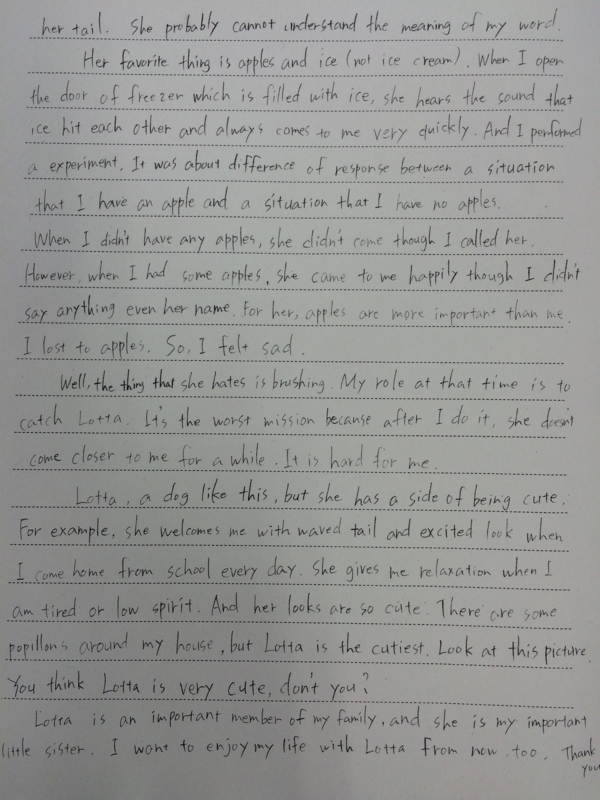 her tail. She probably cannot understand the meaning of my word.
Her favorite thing is apples and ice (not ice cream). When I open
the door of freezer which is filled with ice, she hears the sound that
ice hit each other and always comes to me very quickly. And I performed
a experiment. It was about difference of response between a situation
that I have an apple and a situation that I have no apples.
When I didn't have any apples, she didn't come though I called her.
However, when I had some apples, she came to me happily though I didn't
say anything even her name. For her, apples are more important than me.
I lost to apples. So, I felt sad.
Well, the thing that she hates is brushing. My role at that time is to
catch Lotta. It's the worst mission because after I do it, she doesn't
come closer to me for a while. It is hard for me.
Lotta, a dog like this, but she has a side of being cute.
For example, she welcomes me with waved tail and excited look when
I come home from school every day. She gives me relaxation when I
am tired or low spirit. And her looks are so cute. There are some
popillons around my house, but Lotta is the cutiest. Look at this picture.
You think Lotta is very cute, don't you?
Lotta is an important member of my family, and she is my important
little sister. I want to enjoy my life with Lotta from now, too. Thank
you